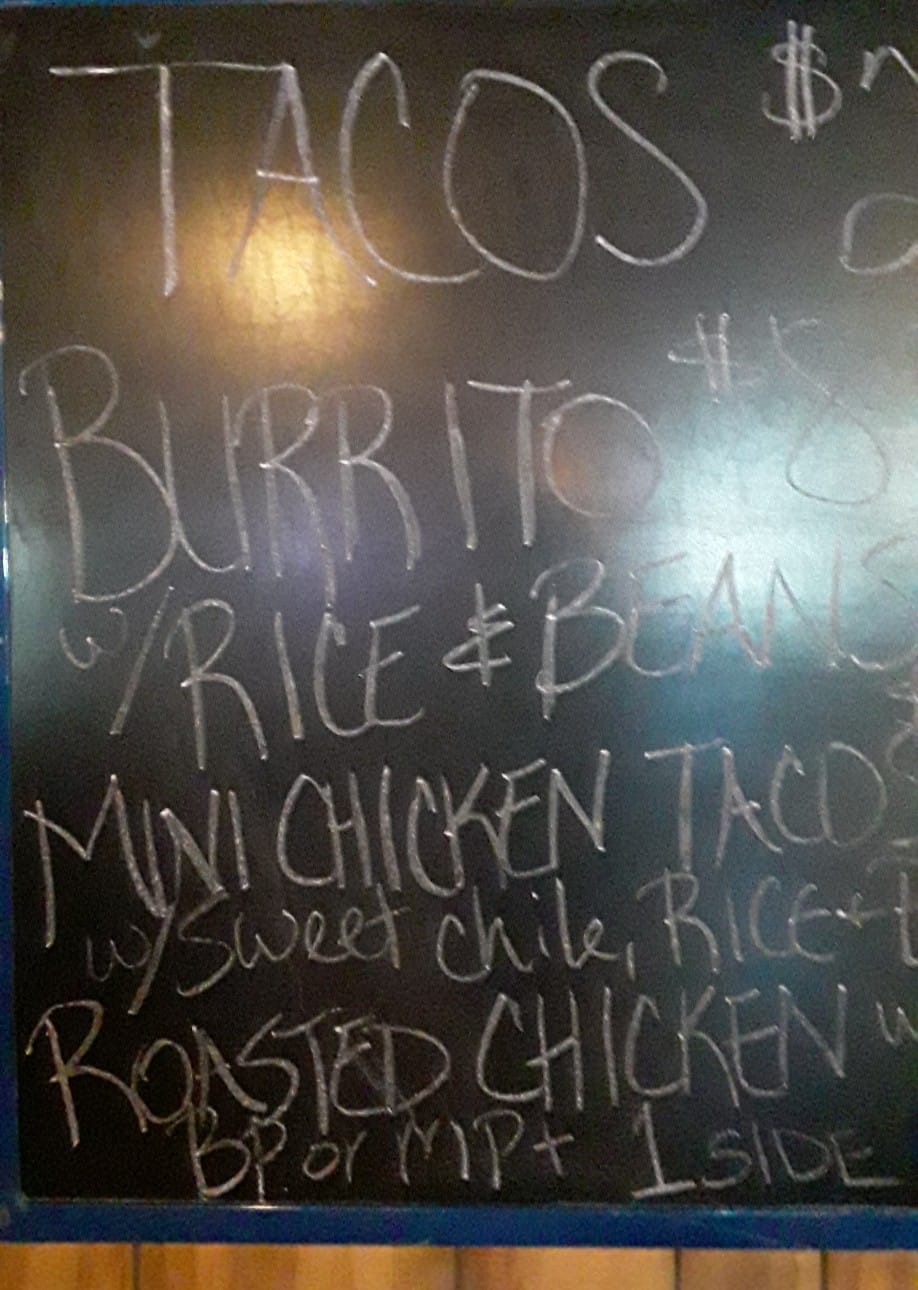 TACOS $
BURRITO $8
w/RICE & BEANS
MINI CHICKEN TACOS
w/Sweet chile, RICE +
ROASTED CHICKEN w
BP or MP + 1 SIDE